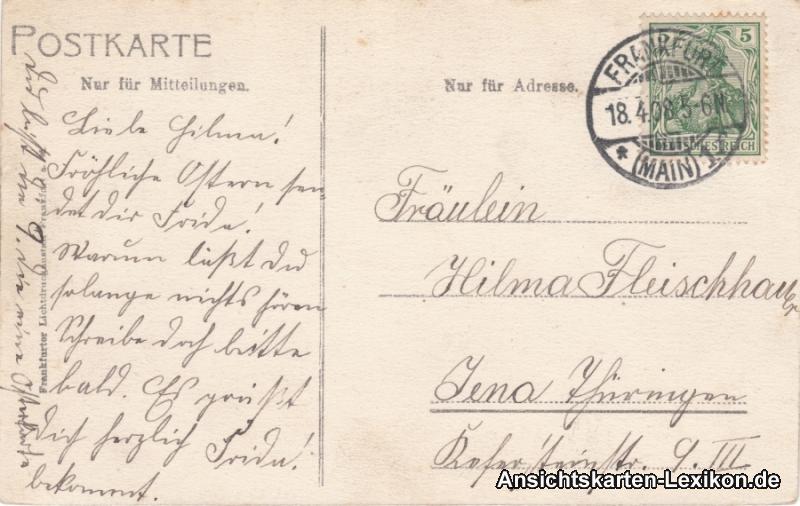 POSTKARTE
Nur für Mitteilungen.
Liebe Hilma!
Fröhliche Ostern sen-
det dir Frida!
Warum läßt Du
solange nichts hören
Schreibe doch bitte
bald. Es grüßt
Dich herzlich Frida!
bekommt.
Frankfurter Lichtdruckanstalt
Nur für Adresse.
FRANKFURT
18.4.08.5-6N.
* (MAIN) 1
5
DEUTSCHES REICH
Fräulein
Hilma Fleischhauer
Jena Thüringen
Kefersteinstr. 9. III
Ansichtskarten-Lexikon.de